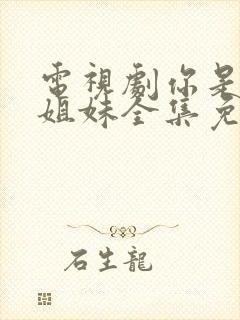 電視劇你是
姐妹全集免
石生龍